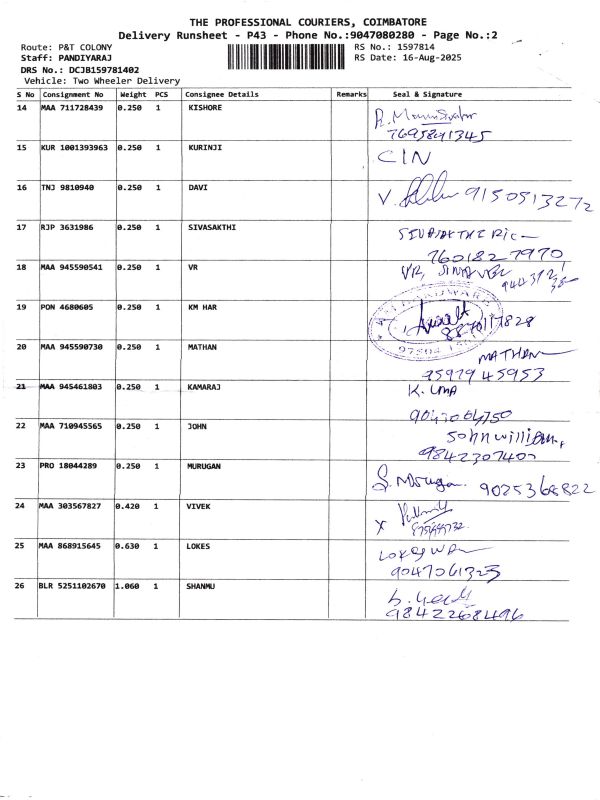 THE PROFESSIONAL COURIERS, COIMBATORE
Delivery Runsheet - P43 - Phone No.:9047080280 - Page No.:2
Route: P&T COLONY
RS No.: 1597814
Staff: PANDIYARAJ
RS Date: 16-Aug-2025
DRS No.: DCJB159781402
Vehicle: Two Wheeler Delivery
S No Consignment No Weight PCS Consignee Details Remarks Seal & Signature
14 MAA 711728439 0.250 1 KISHORE
7695841345
15 KUR 1001393963 0.250 1 KURINJI
CIN
16 TNJ 9810940 0.250 1 DAVI
V. 9150513272
17 RJP 3631986 0.250 1 SIVASAKTHI
7601827970
18 MAA 945590541 0.250 1 VR
VR,
19 PON 4680605 0.250 1 KM HAR
8870117828
20 MAA 945590730 0.250 1 MATHAN
MATHAN
7597945953
21 MAA 945461803 0.250 1 KAMARAJ
K. UMA
22 MAA 710945565 0.250 1 JOHN
John william
23 PRO 18044289 0.250 1 MURUGAN
S. Murugan. 9025368822
24 MAA 303567827 0.420 1 VIVEK
X
25 MAA 868915645 0.630 1 LOKES
9047061325
26 BLR 5251102670 1.060 1 SHANMU
9842268496